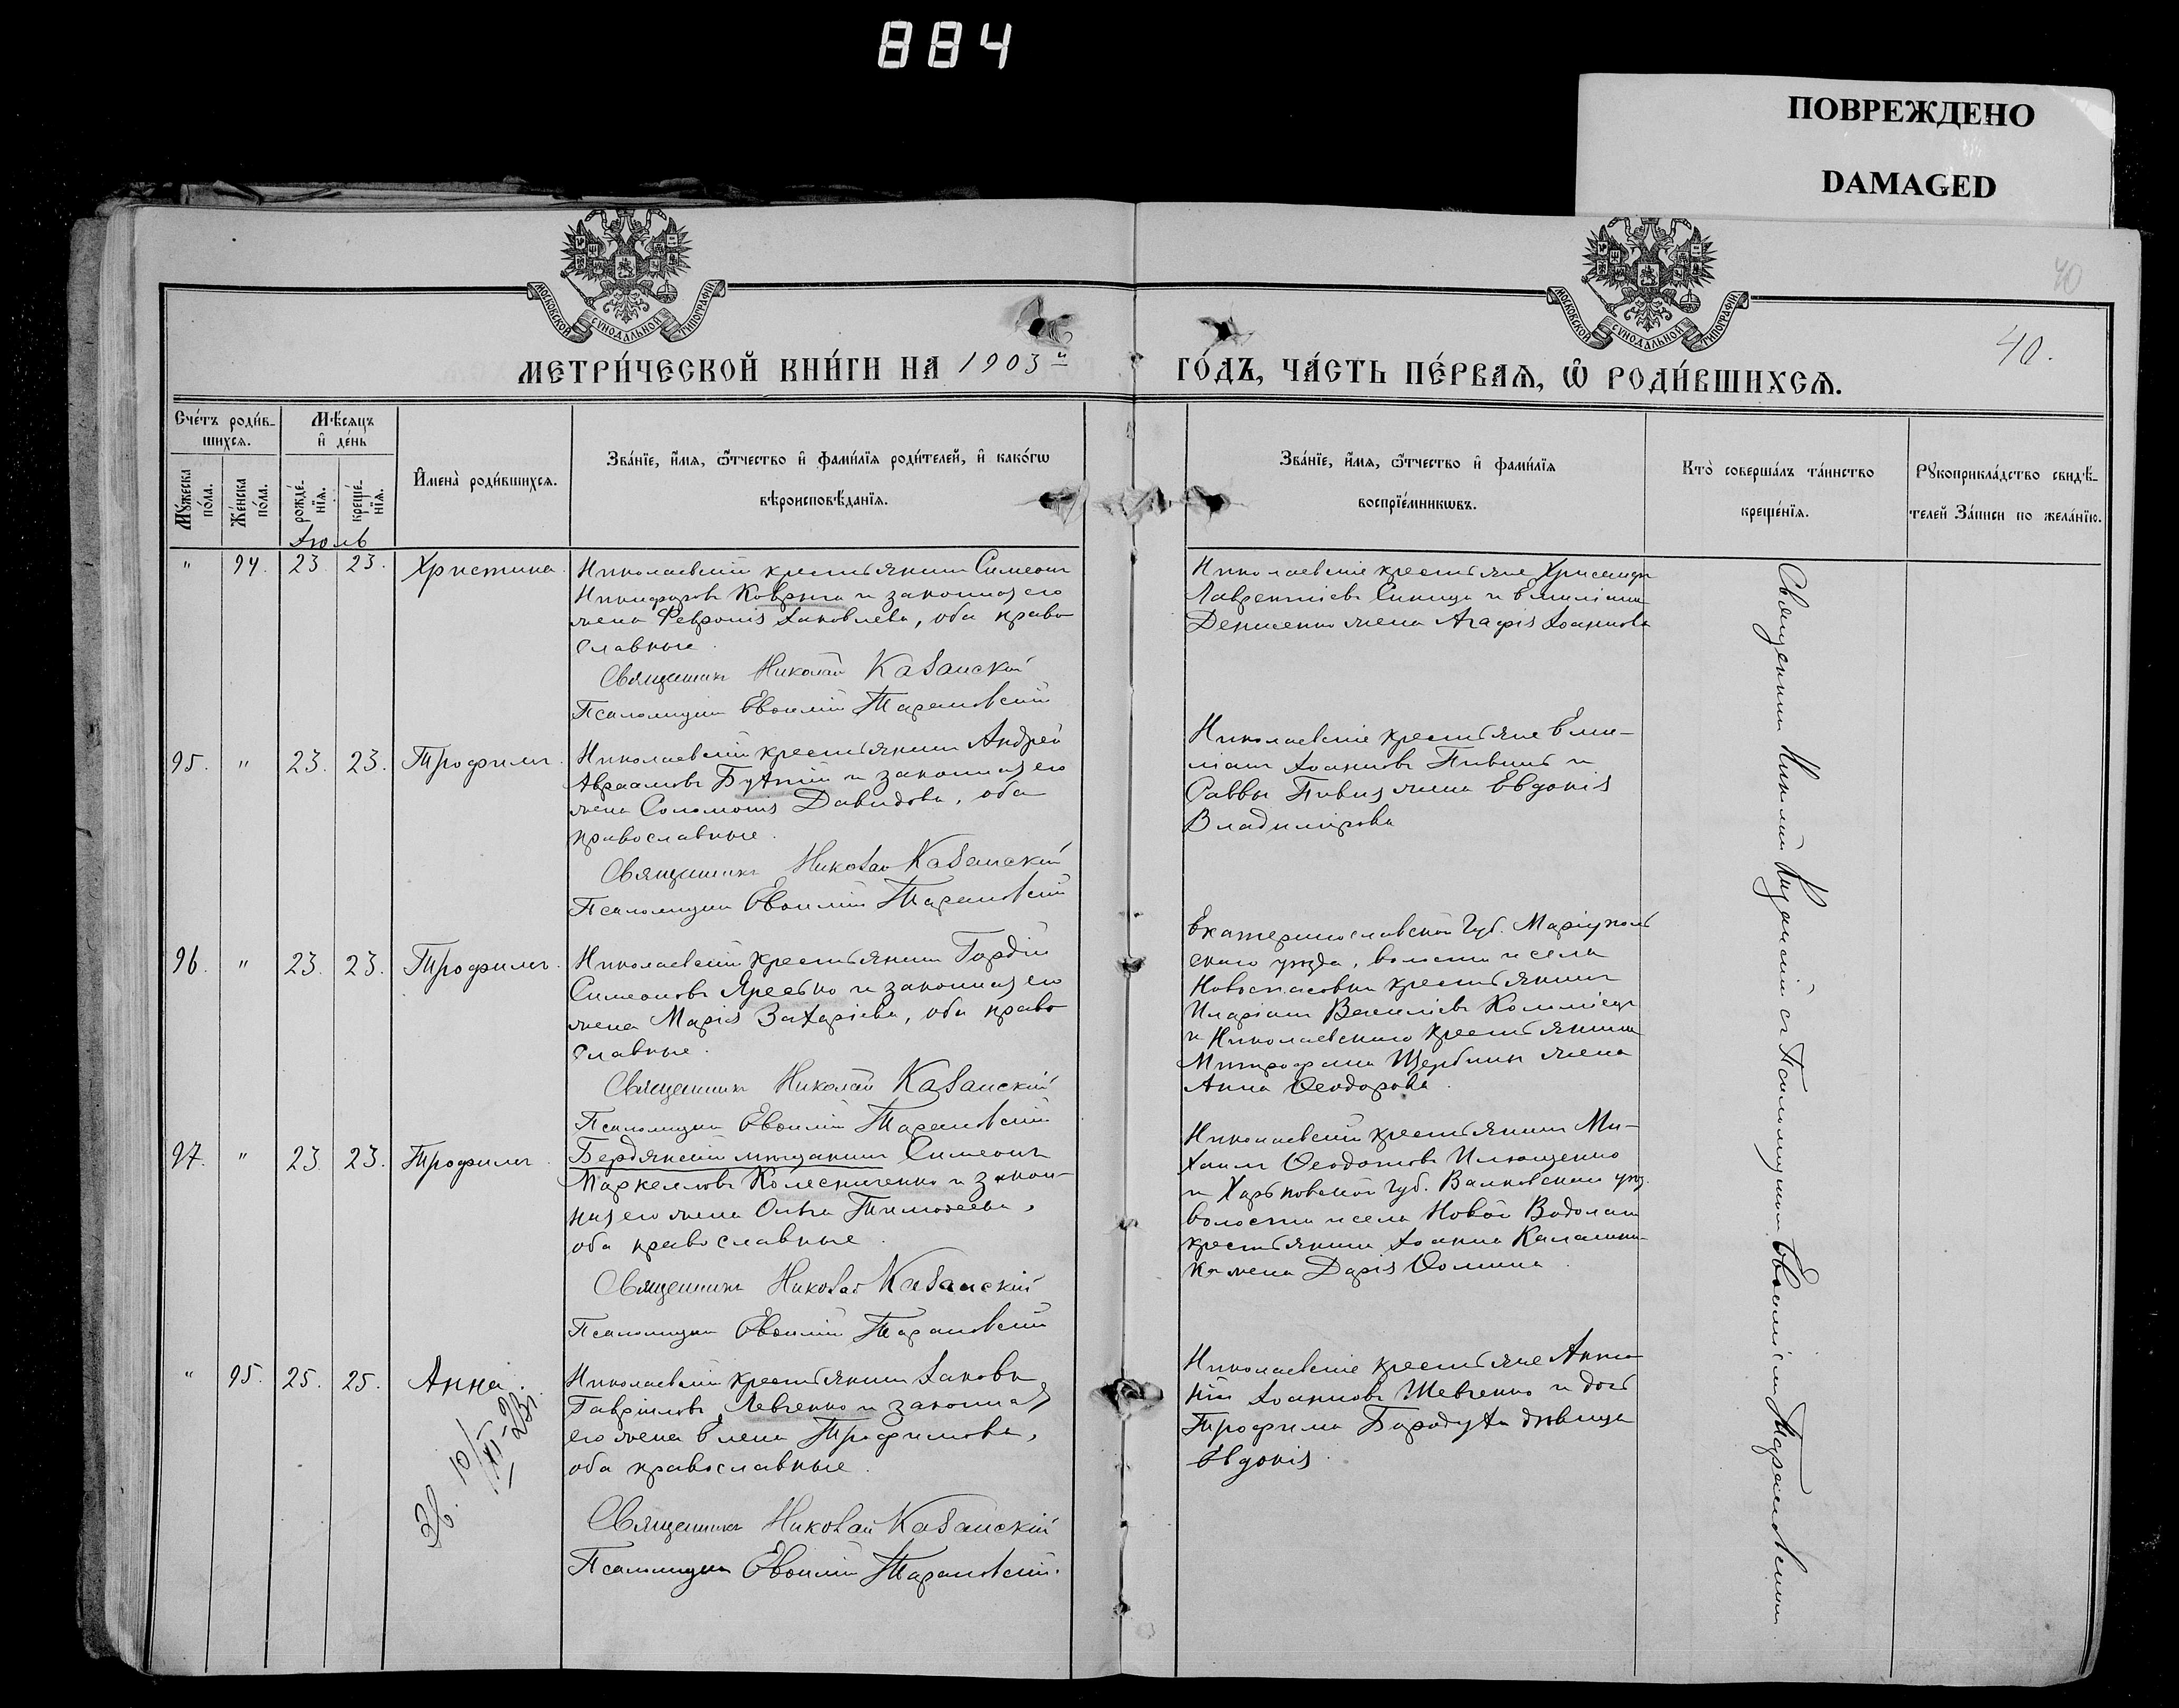 884
ПОВРЕЖДЕНО
DAMAGED
МОСКОВСКОЙ СѴНОДАЛЬНОЙ ТИПОГРАФІИ
МОСКОВСКОЙ СѴНОДАЛЬНОЙ ТИПОГРАФІИ
40
40.
МЕТРИ́ЧЕСКОЙ КНИ́ГИ НА 1903й
ГО́ДЪ, ЧА́СТЬ ПЕ́РВАѦ, Ѿ РОДИ́ВШИХСѦ.
Сче́тъ роди́в-
шихсѧ.
Мѣ́сѧцъ
и҆ де́нь
Мꙋ́жеска
по́ла.
Же́нска
по́ла.
рожде́-
нїѧ.
креще́-
нїѧ.
И҆мена̀ роди́вшихсѧ.
Зва́нїе, и҆́мѧ, ѻ҆́тчество и҆ фами́лїѧ роди́телей, и҆ како́гѡ
вѣроисповѣ́данїѧ.
Зва́нїе, и҆́мѧ, ѻ҆́тчество и҆ фами́лїѧ
воспрїе́мникѡвъ.
Кто̀ соверша́лъ та́инство
креще́нїѧ.
Рꙋкоприкла́дство свидѣ́-
телей За́писи по жела́нїю.
Іюль
" 94. 23. 23. Христина.
Николаевскій крестьянинъ Симеонъ
Никифоровъ Коврыга и законная его
жена Февронія Іаковлева, оба право
славные.
Священникъ Николай Казанскій
Псаломщикъ Евѳимій Тарановскій
Николаевскіе крестьяне Хрисанфъ
Лаврентіевъ Синица и Емиліана
Денисенко жена Агафія Іоаннова
95. " 23. 23. Трофимъ.
Николаевскій крестьянинъ Андрей
Авраамовъ и законная его
жена Соломонія Давидова, оба
православные.
Священникъ Николай Казанскій
Псаломщикъ Евѳимій Тарановскій
Николаевскіе крестьяне Еми-
ліанъ Іоанновъ и
Саввы жена Евдокія
Владимірова
96. " 23. 23. Трофимъ.
Николаевскій крестьянинъ Гордій
Симеоновъ Яресько и законная его
жена Марія Захаріева, оба право
славные.
Священникъ Николай Казанскій
Псаломщикъ Евѳимій Тарановскій
Екатеринославской Губ. Маріуполь
скаго уѣзда, волости и села
Новоспасовки крестьянинъ
Иларіонъ Василіевъ
и Николаевскаго крестьянина
Митрофана Щербины жена
Анна Ѳеодорова.
97. " 23. 23. Трофимъ.
Бердянскій мѣщанинъ Симеонъ
Маркелловъ Колесниченко и закон-
ная его жена Ольга Тимоѳеева,
оба православные.
Священникъ Николай Казанскій
Псаломщикъ Евѳимій Тарановскій
Николаевскій крестьянинъ Ми-
хаилъ Ѳеодотовъ Илющенко
и Харьковской губ. Валковскаго уѣз.
волости и села Новой Водолаги
крестьянина Іоанна Каламни-
ка жена Дарія Ѳомина.
" 95. 25. 25. Анна.
Николаевскій крестьянинъ Іаковъ
Гавріиловъ Левченко и законная
его жена Елена Трофимова,
оба православные.
Священникъ Николай Казанскій
Псаломщикъ Евѳимій Тарановскій.
Николаевскіе крестьяне
Іоанновъ Шевченко и дочь
Трофима дѣвица
Евдокія.
Священникъ Николай Казанскій съ Псаломщикомъ Евѳиміемъ Тарановскимъ.